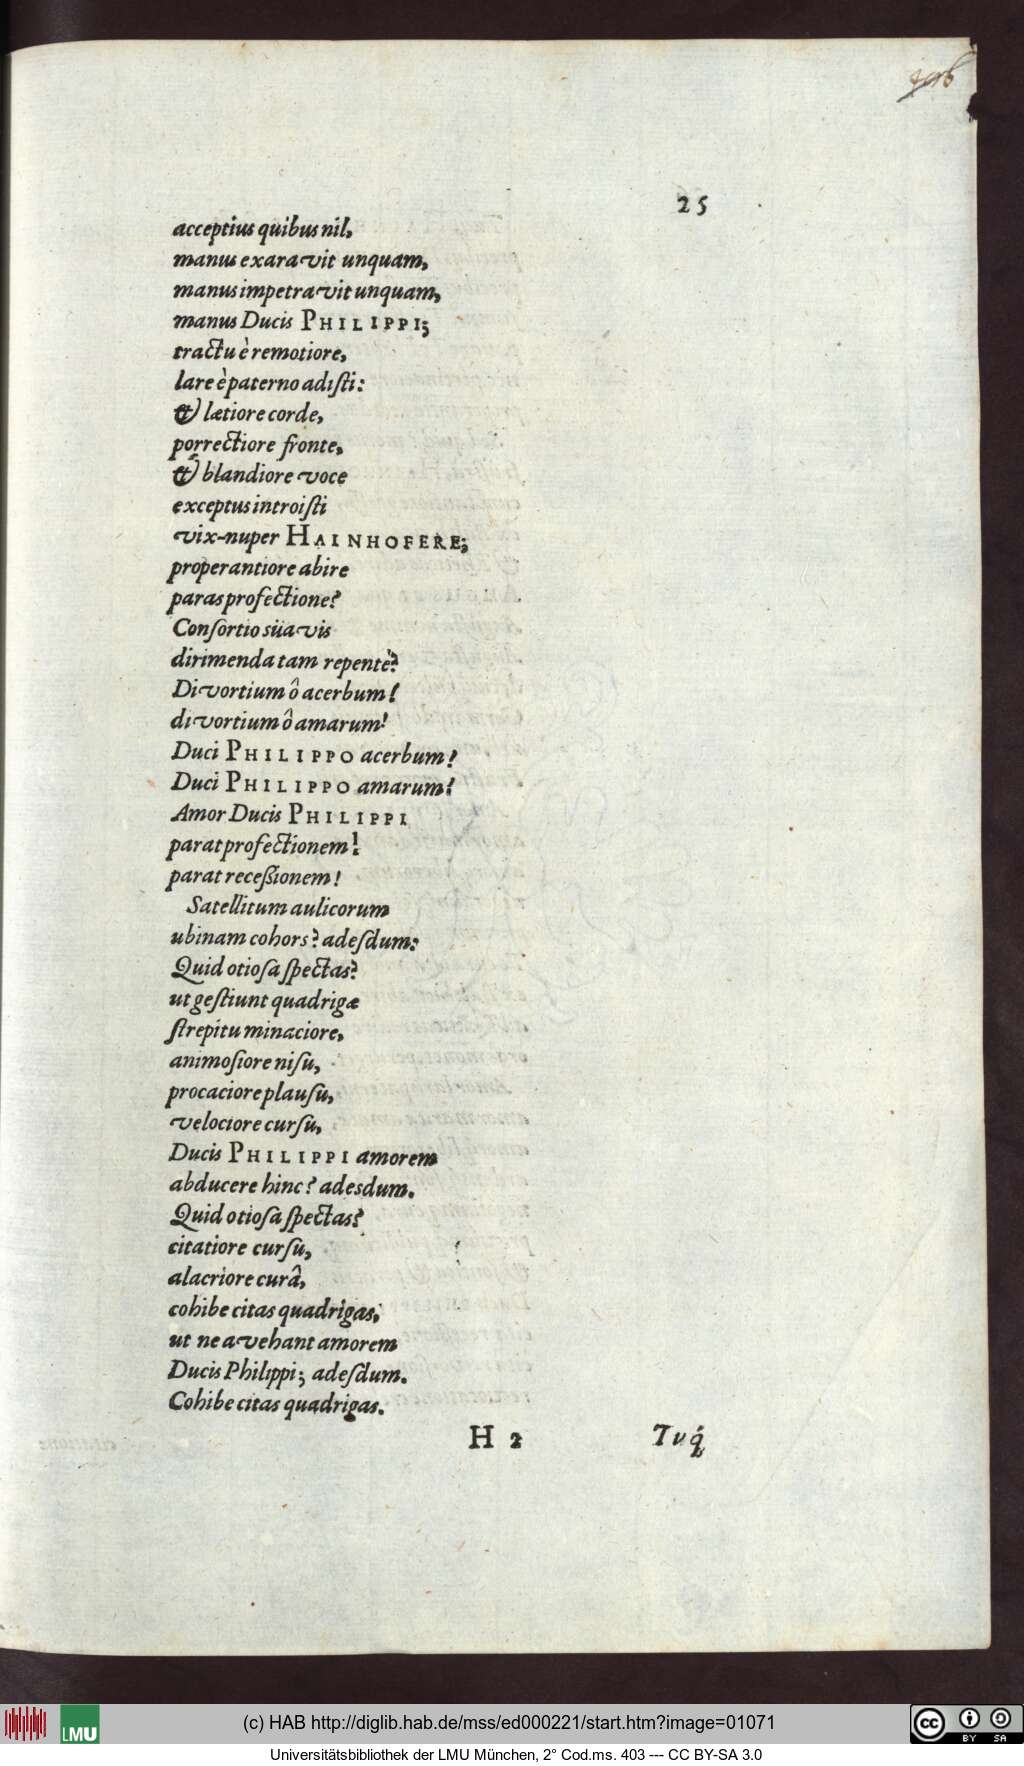 25
acceptius quibus nil,
manus exaravit unquam,
manus impetravit unquam,
manus Ducis PHILIPPI;
tractu è remotiore,
lare è paterno adiſti:
& lætiore corde,
porrectiore fronte,
& blandiore voce
exceptus introiſti
vix-nuper HAINHOFERE;
properantiore abire
paras profectione?
Conſortio süavis
dirimenda tam repentè?
Divortium ô acerbum!
divortium ô amarum!
Duci PHILIPPO acerbum!
Duci PHILIPPO amarum!
Amor Ducis PHILIPPI
parat profectionem!
parat receßionem!
Satellitum aulicorum
ubinam cohors? adeſdum:
Quid otioſa ſpectas?
ut geſtiunt quadrigæ
ſtrepitu minaciore,
animoſiore niſu,
procaciore plauſu,
velociore curſu,
Ducis PHILIPPI amorem
abducere hinc? adesdum.
Quid otioſa ſpectas?
citatiore curſu,
alacriore curâ,
cohibe citas quadrigas,
ut ne avehant amorem
Ducis Philippi; adeſdum.
Cohibe citas quadrigas.
H 2 Tuq́
(c) HAB http://diglib.hab.de/mss/ed000221/start.htm?image=01071
LMU
CC BY SA
Universitätsbibliothek der LMU München, 2° Cod.ms. 403 --- CC BY-SA 3.0